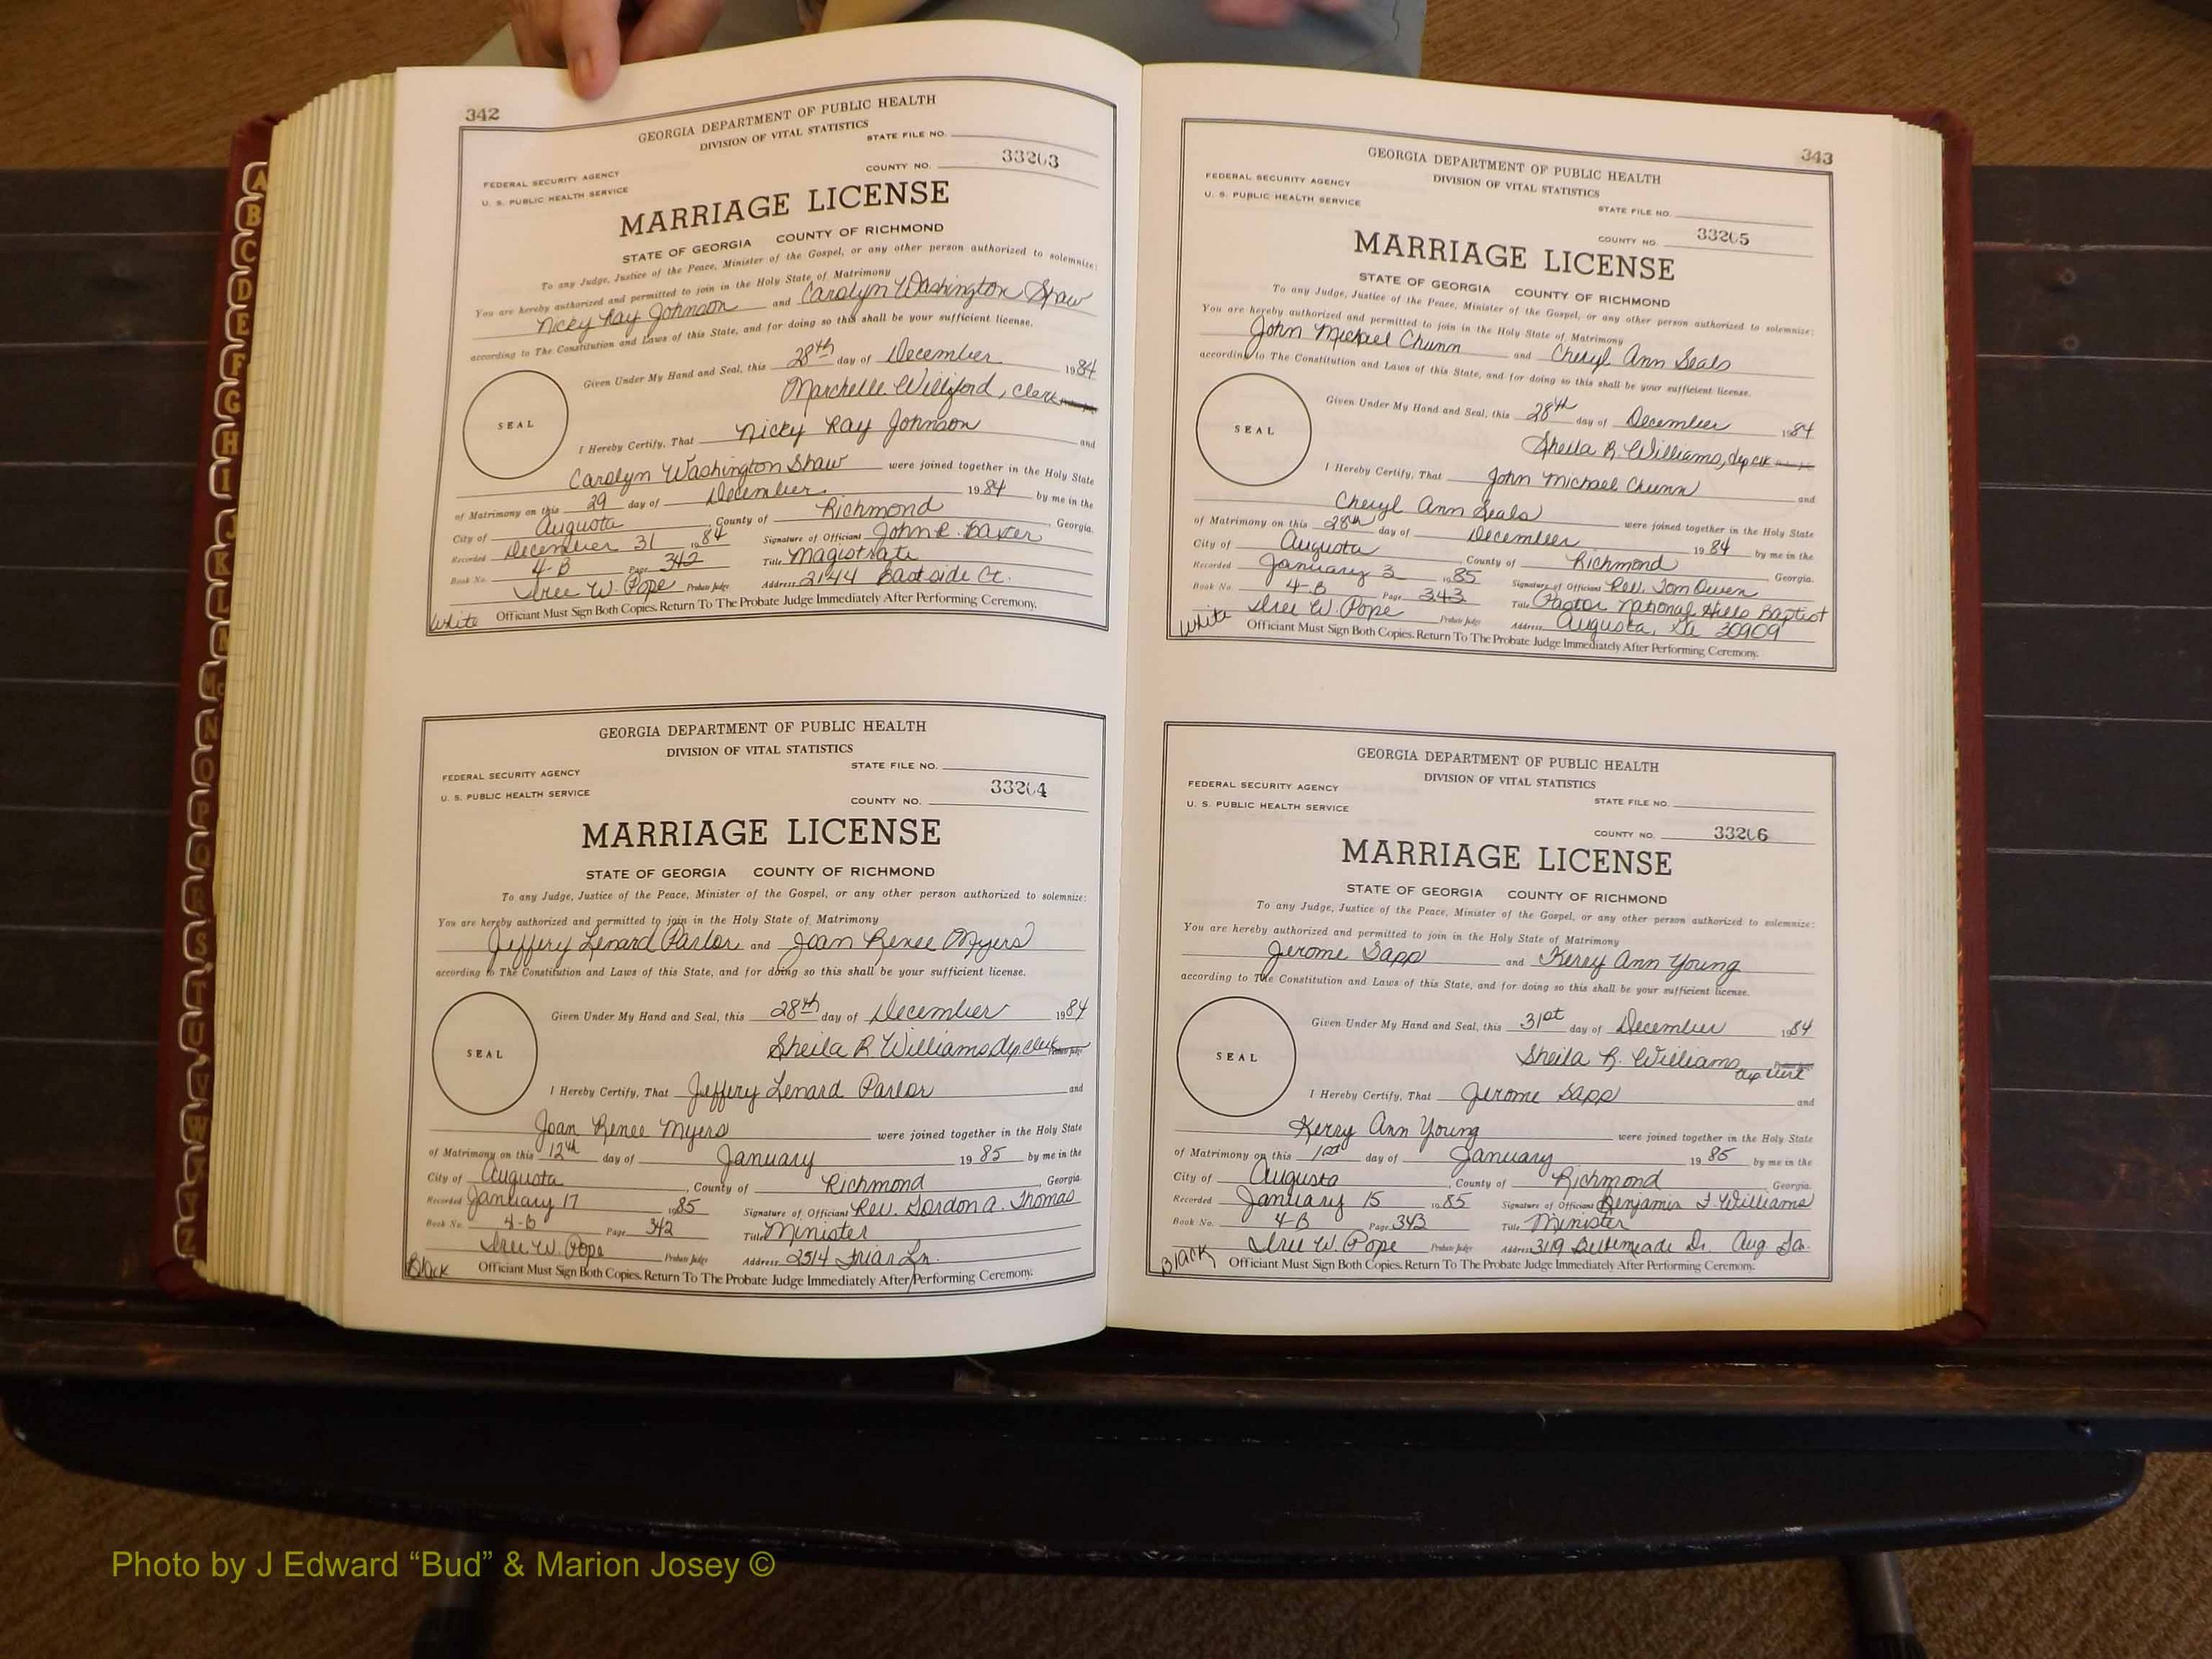 342
GEORGIA DEPARTMENT OF PUBLIC HEALTH
DIVISION OF VITAL STATISTICS
STATE FILE NO.
COUNTY NO. 33263
FEDERAL SECURITY AGENCY
U. S. PUBLIC HEALTH SERVICE
MARRIAGE LICENSE
STATE OF GEORGIA COUNTY OF RICHMOND
To any Judge, Justice of the Peace, Minister of the Gospel, or any other person authorized to solemnize:
You are hereby authorized and permitted to join in the Holy State of Matrimony
Nicky Ray Johnson and Carolyn Washington Shaw
according to The Constitution and Laws of this State, and for doing so this shall be your sufficient license.
Given Under My Hand and Seal, this 28th day of December 1984
Marchelle Williford, Clerk
SEAL
I Hereby Certify, That Nicky Ray Johnson and
Carolyn Washington Shaw were joined together in the Holy State
of Matrimony on this 29 day of December 1984 by me in the
City of Augusta, County of Richmond, Georgia.
Recorded December 31 1984 Signature of Officiant John R. Baxter
Book No. 4-B Page 342 Title Magistrate
Iree W. Pope Probate Judge Address 2144 Eastside Ct.
White Officiant Must Sign Both Copies. Return To The Probate Judge Immediately After Performing Ceremony.
GEORGIA DEPARTMENT OF PUBLIC HEALTH
DIVISION OF VITAL STATISTICS
STATE FILE NO.
FEDERAL SECURITY AGENCY
U. S. PUBLIC HEALTH SERVICE
COUNTY NO. 33264
MARRIAGE LICENSE
STATE OF GEORGIA COUNTY OF RICHMOND
To any Judge, Justice of the Peace, Minister of the Gospel, or any other person authorized to solemnize:
You are hereby authorized and permitted to join in the Holy State of Matrimony
Jeffery Lenard Parlor and Joan Renee Myers
according to The Constitution and Laws of this State, and for doing so this shall be your sufficient license.
Given Under My Hand and Seal, this 28th day of December 1984
Sheila R. Williams dep. clerk
SEAL
I Hereby Certify, That Jeffery Lenard Parlor and
Joan Renee Myers were joined together in the Holy State
of Matrimony on this 12th day of January 1985 by me in the
City of Augusta, County of Richmond, Georgia.
Recorded January 17 1985 Signature of Officiant Rev. Gordon A. Thomas
Book No. 4-B Page 342 Title Minister
Iree W. Pope Probate Judge Address 2514 Friar Ln.
Black Officiant Must Sign Both Copies. Return To The Probate Judge Immediately After Performing Ceremony.
343
GEORGIA DEPARTMENT OF PUBLIC HEALTH
DIVISION OF VITAL STATISTICS
FEDERAL SECURITY AGENCY
U. S. PUBLIC HEALTH SERVICE
STATE FILE NO.
COUNTY NO. 33265
MARRIAGE LICENSE
STATE OF GEORGIA COUNTY OF RICHMOND
To any Judge, Justice of the Peace, Minister of the Gospel, or any other person authorized to solemnize:
You are hereby authorized and permitted to join in the Holy State of Matrimony
John Michael Chunn and Cheryl Ann Seals
according to The Constitution and Laws of this State, and for doing so this shall be your sufficient license.
Given Under My Hand and Seal, this 28th day of December 1984
Sheila R. Williams, dep clk
SEAL
I Hereby Certify, That John Michael Chunn and
Cheryl Ann Seals were joined together in the Holy State
of Matrimony on this 28th day of December 1984 by me in the
City of Augusta County of Richmond Georgia.
Recorded January 3 1985 Signature of Officiant Rev. Tom Owen
Book No. 4-B Page 343 Title Pastor National Hills Baptist
Iree W. Pope Probate Judge Address Augusta, Ga 30909
White Officiant Must Sign Both Copies. Return To The Probate Judge Immediately After Performing Ceremony.
GEORGIA DEPARTMENT OF PUBLIC HEALTH
DIVISION OF VITAL STATISTICS
FEDERAL SECURITY AGENCY
U. S. PUBLIC HEALTH SERVICE
STATE FILE NO.
COUNTY NO. 33266
MARRIAGE LICENSE
STATE OF GEORGIA COUNTY OF RICHMOND
To any Judge, Justice of the Peace, Minister of the Gospel, or any other person authorized to solemnize:
You are hereby authorized and permitted to join in the Holy State of Matrimony
Jerome Sapp and Kerry Ann Young
according to The Constitution and Laws of this State, and for doing so this shall be your sufficient license.
Given Under My Hand and Seal, this 31st day of December 1984
Sheila R. Williams dep clerk
SEAL
I Hereby Certify, That Jerome Sapp and
Kerry Ann Young were joined together in the Holy State
of Matrimony on this 1st day of January 1985 by me in the
City of Augusta, County of Richmond Georgia.
Recorded January 15 1985 Signature of Officiant Benjamin F. Williams
Book No. 4-B Page 343 Title Minister
Iree W. Pope Probate Judge Address 3119 Bellemeade Dr. Aug Ga.
Black Officiant Must Sign Both Copies. Return To The Probate Judge Immediately After Performing Ceremony.
A
B
C
D
E
F
G
H
I
J
K
L
M
Mc
N
O
P
Q
R
S
T
U
V
W
Z
Photo by J Edward “Bud” & Marion Josey ©